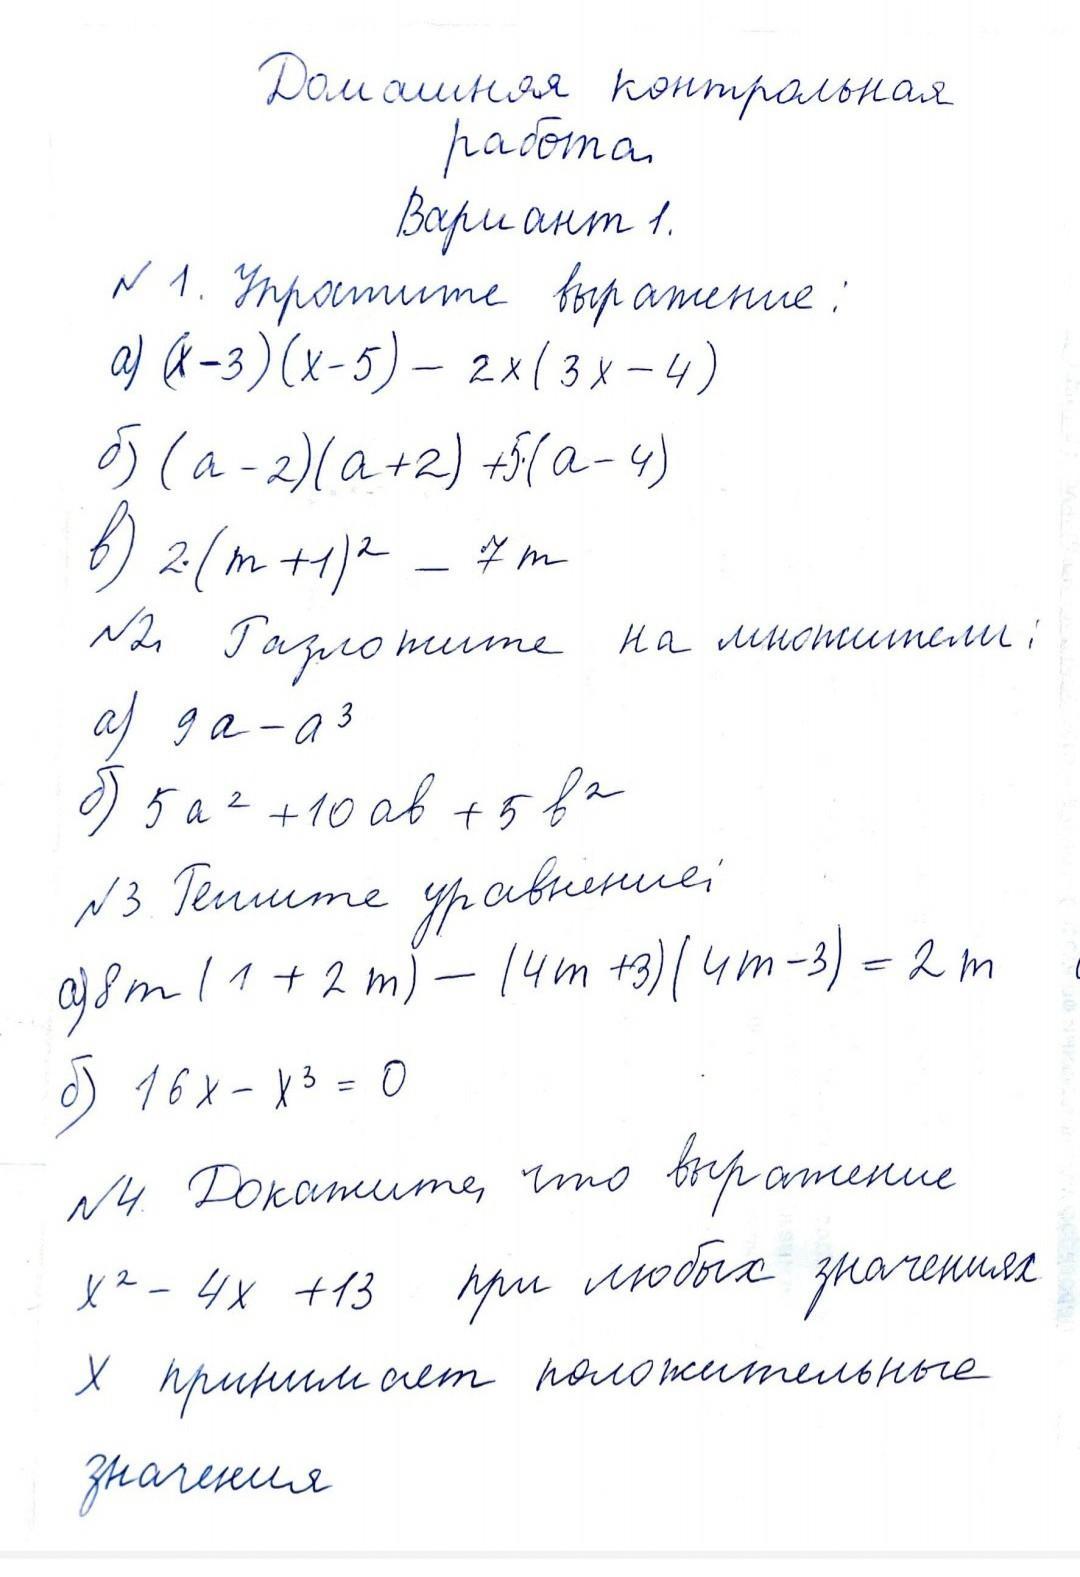 Домашная контрольная
работа.
Вариант 1.
№ 1. Упростите выражение:
а) (x-3)(x-5) - 2x(3x-4)
б) (a-2)(a+2) +5·(a-4)
в) 2·(m+1)² - 7m
№2. Разложите на множители:
а) 9a-a³
б) 5a² +10ab +5b²
№3. Решите уравнение:
а) 8m(1+2m) - (4m+3)(4m-3) = 2m
б) 16x - x³ = 0
№4. Докажите, что выражение
x² - 4x +13 при любых значениях
x принимает положительные
значения